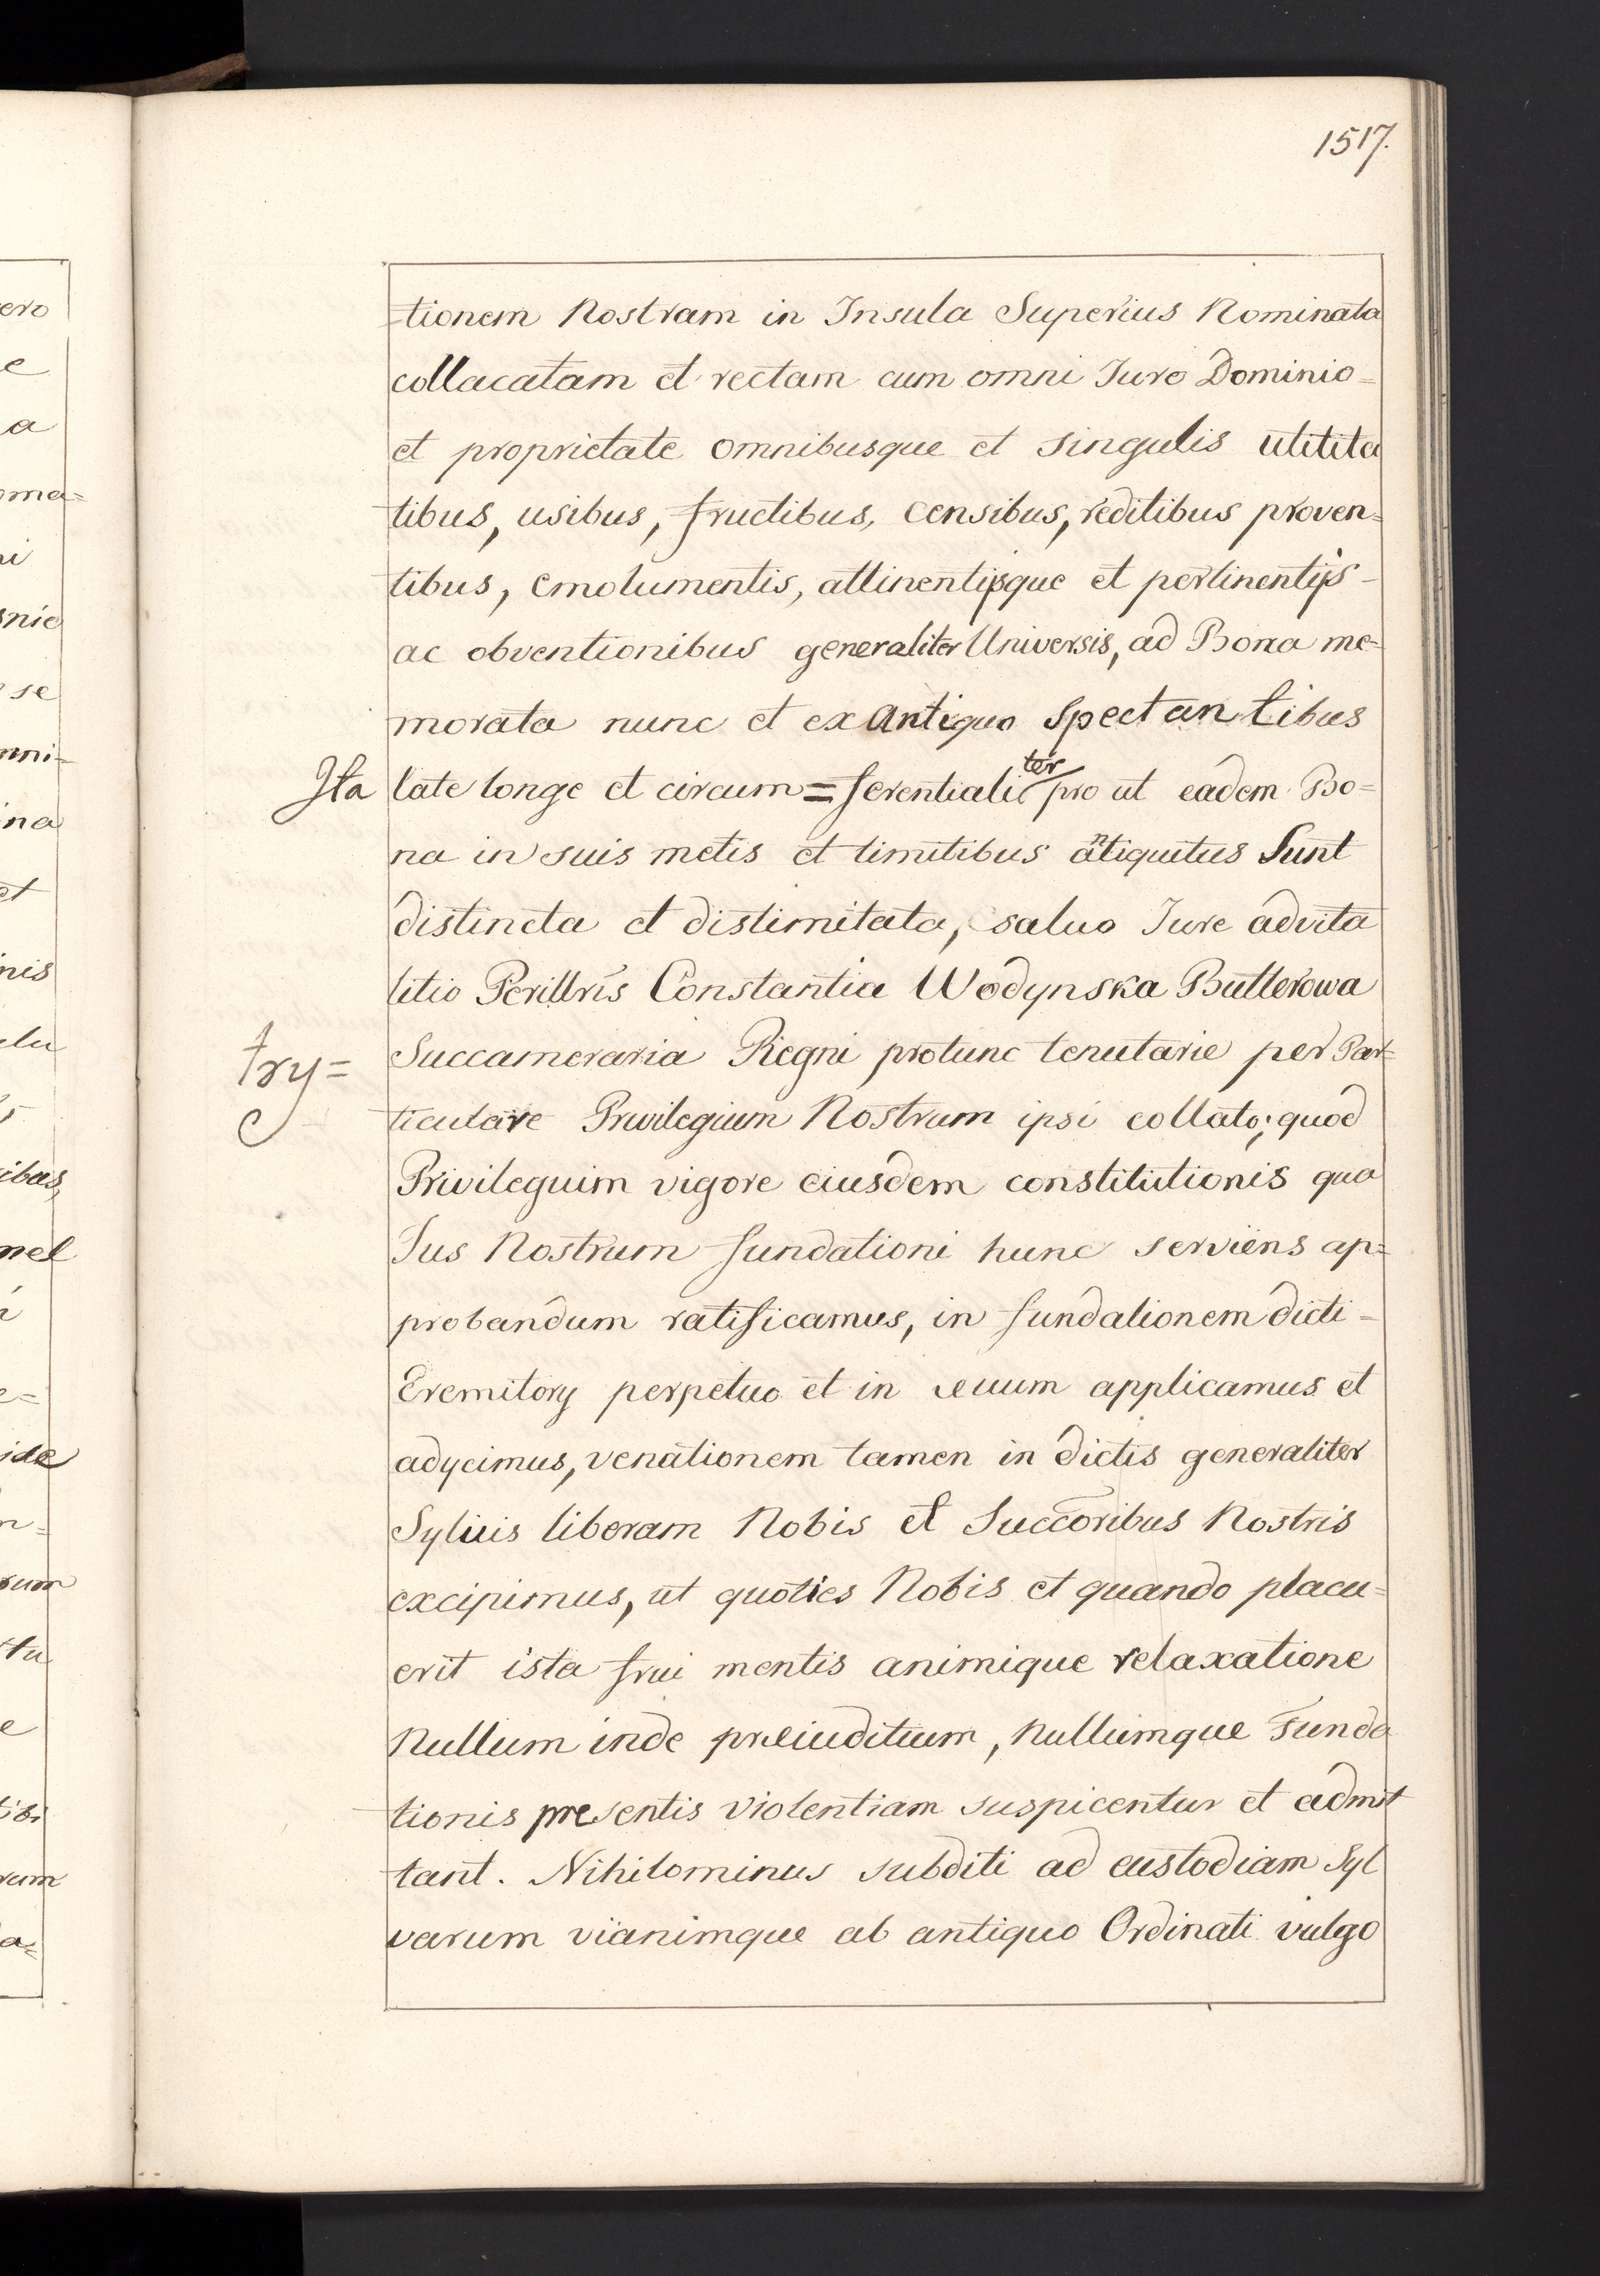 1517.
=tionem Nostram in Insula Superius Nominata
collacatam et rectam cum omni Jure Dominio=
et proprietate omnibusque et singulis utitita
tibus, usibus, fructibus, censibus, reditibus proven=
tibus, emolumentis, attinentijsque et pertinentijs-
ac obventionibus generaliter Universis, ad Bona me-
morata nunc et ex antiquo spectantibus
Ita late longe et circum=ferentialiter pro ut eadem Bo=
na in suis metis et limitibus antiquitus Sunt
distincta et distimitata, saluo Jure advita
litio Perillris Constantiæ Wodynska Butterowa
Succameraria Regni protunc tenutariæ per Par=
try=
ticulare Privilegium Nostrum ipsi collato; quod
Privileguim vigore eiusdem constitutionis qua
Jus Nostrum fundationi hunc serviens ap=
probandum ratificamus, in fundationem dicti=
Eremitory perpetuo et in æuum applicamus et
adycimus, venationem tamen in dictis generaliter
Syluis liberam Nobis et Succoribus Nostris
excipimus, ut quoties Nobis et quando placu=
erit ista frui mentis animique relaxatione
Nullum inde præiuditium, Nullumque Funda
tionis presentis violentiam suspicentur et admit
tant. Nihilominus subditi ad custodiam Syl
varum vianimque ab antiquo Ordinati vulgo